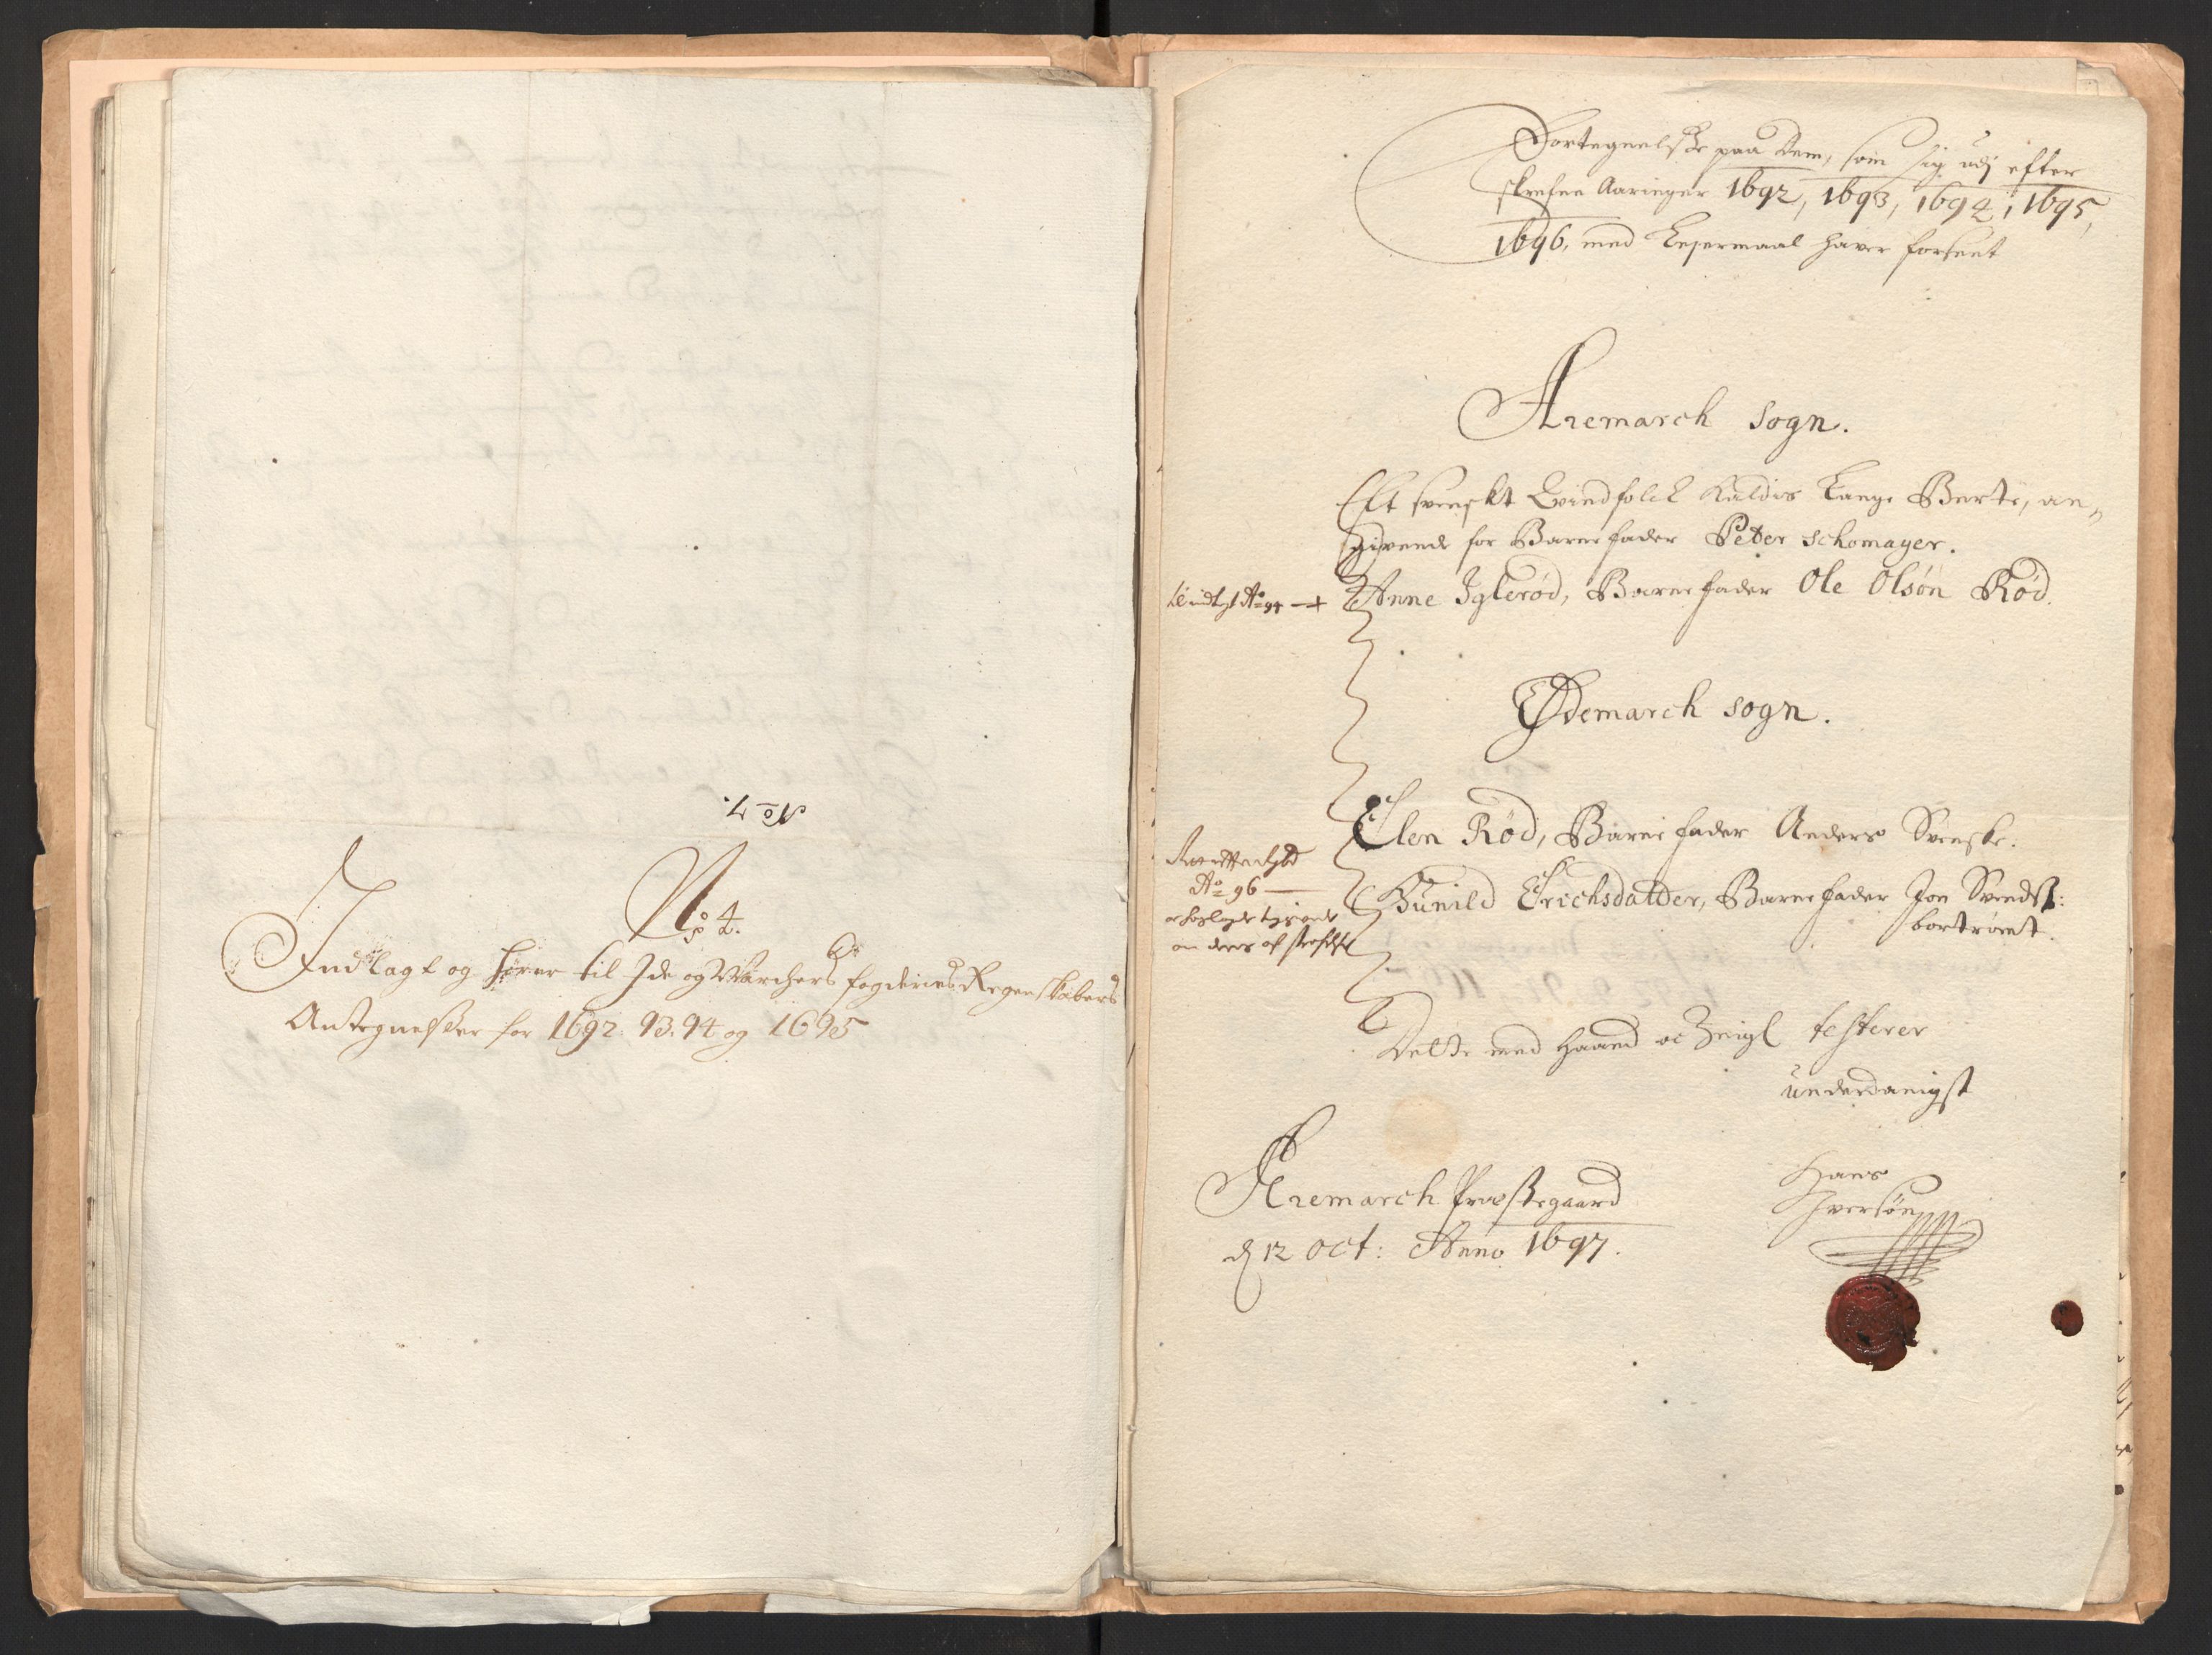 No 7.
No 4.
Indlagt og hörer til Ide og Marchers fogderies Regenskabers
Antegnelser for 1692. 93. 94 og 1695
Fortegnelse paa dem, som sig udj efter
skrefne Aaringer 1692, 1693, 1694, 1695,
1696, med Leyermaal hafver forseet
Aremarch sogn.
Ett svenskt Qvindfolck kaldis Lange Berte, an„
givende for Barnefader Peter Schomager.
Anne Iglerød, Barnefader Ole Olsøn Rød.
Ao 94
Ødemarch sogn.
Elen Rød, Barne fader Anders Svenske.
Ao 96
Gunild Erichsdatter, Barne fader Jon Svends:
bortrømt.
Dette med Haand oc Zeigl testerer
underdanigst
Aremarch Præstegaard
d 12 Oct: Anno 1697.
Hans
Iversøn